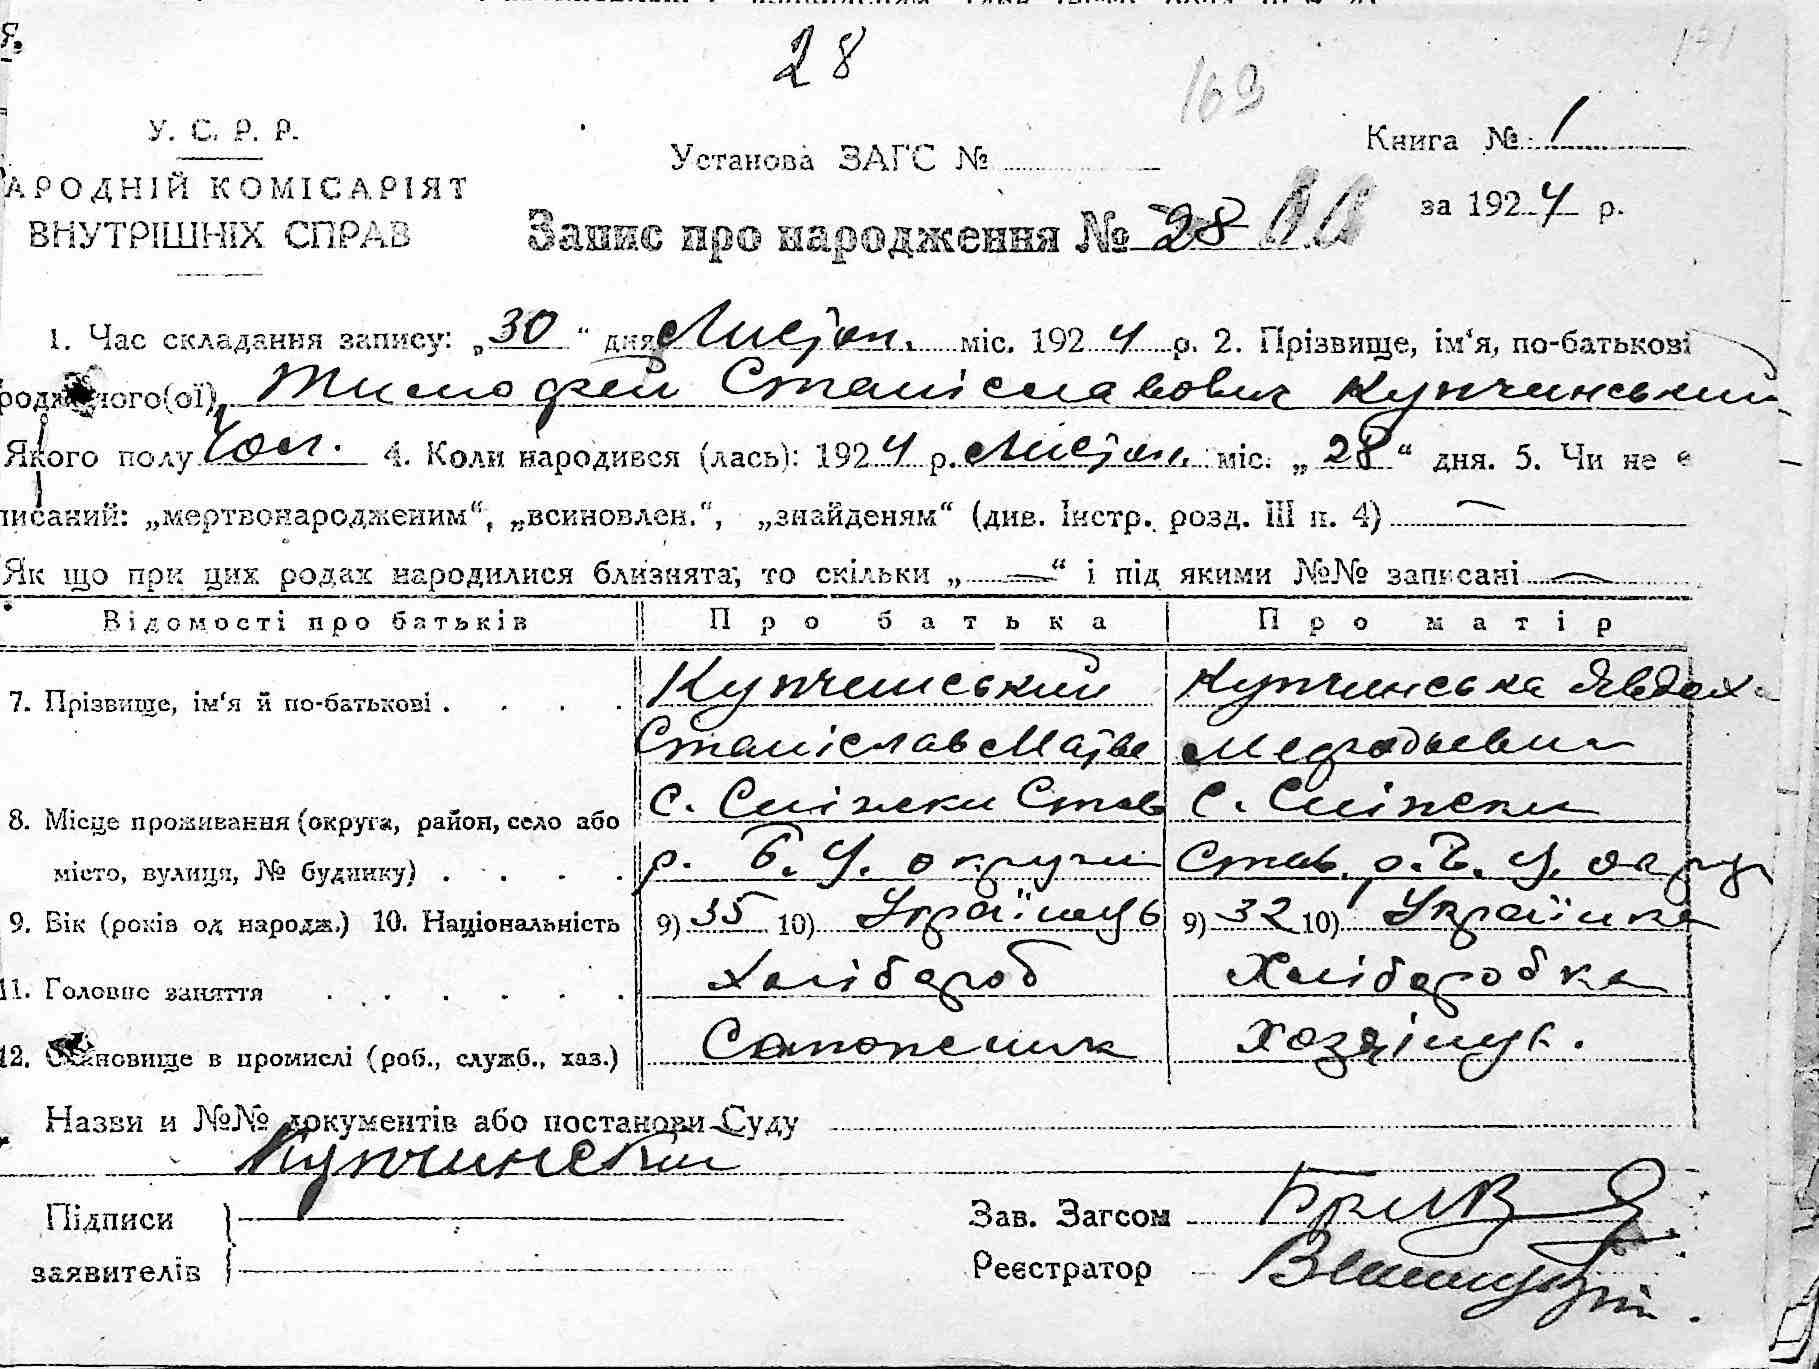 28
169
171
У. С. Р. Р.
АРОДНІЙ КОМІСАРІЯТ
ВНУТРІШНІХ СПРАВ
Установа ЗАГС №
Книга № 1
за 1924 р.
Запис про народження № 28
1. Час складання запису: „30“ дня Листоп. міс. 1924 р. 2. Прізвище, ім‘я, по-батькові
Тимофей Станіславович Купчинський
Якого полу Чол. 4. Коли народився (лась): 1924 р. Листоп. міс. „28“ дня. 5. Чи не є
писаний: „мертвонародженим“, „всиновлен.“, „знайденям“ (див. Інстр. розд. III п. 4) —
Як що при цих родах народилися близнята; то скільки „—“ і під якими №№ записані —
Відомості про батьків Про батька Про матір
7. Прізвище, ім‘я й по-батькові . . . . Купчинський Купчинська Явдоха
Станіслав Матве
С. Сніжки Став С. Сніжки
8. Місце проживання (округа, район, село або
місто, вулиця, № будинку) . . . . р. Б. Ц. округи Став. р. Б. Ц. округ
9. Вік (років од народж.) 10. Національність 9) 35 10) Українець 9) 32 10) Українка
11. Головне заняття . . . . . . Хлібороб Хліборобка
12. Становище в промислі (роб., служб., хаз.)
Назви и №№ документів або постанови Суду
Купчинский
Підписи
заявителів
Зав. Загсом
Реєстратор